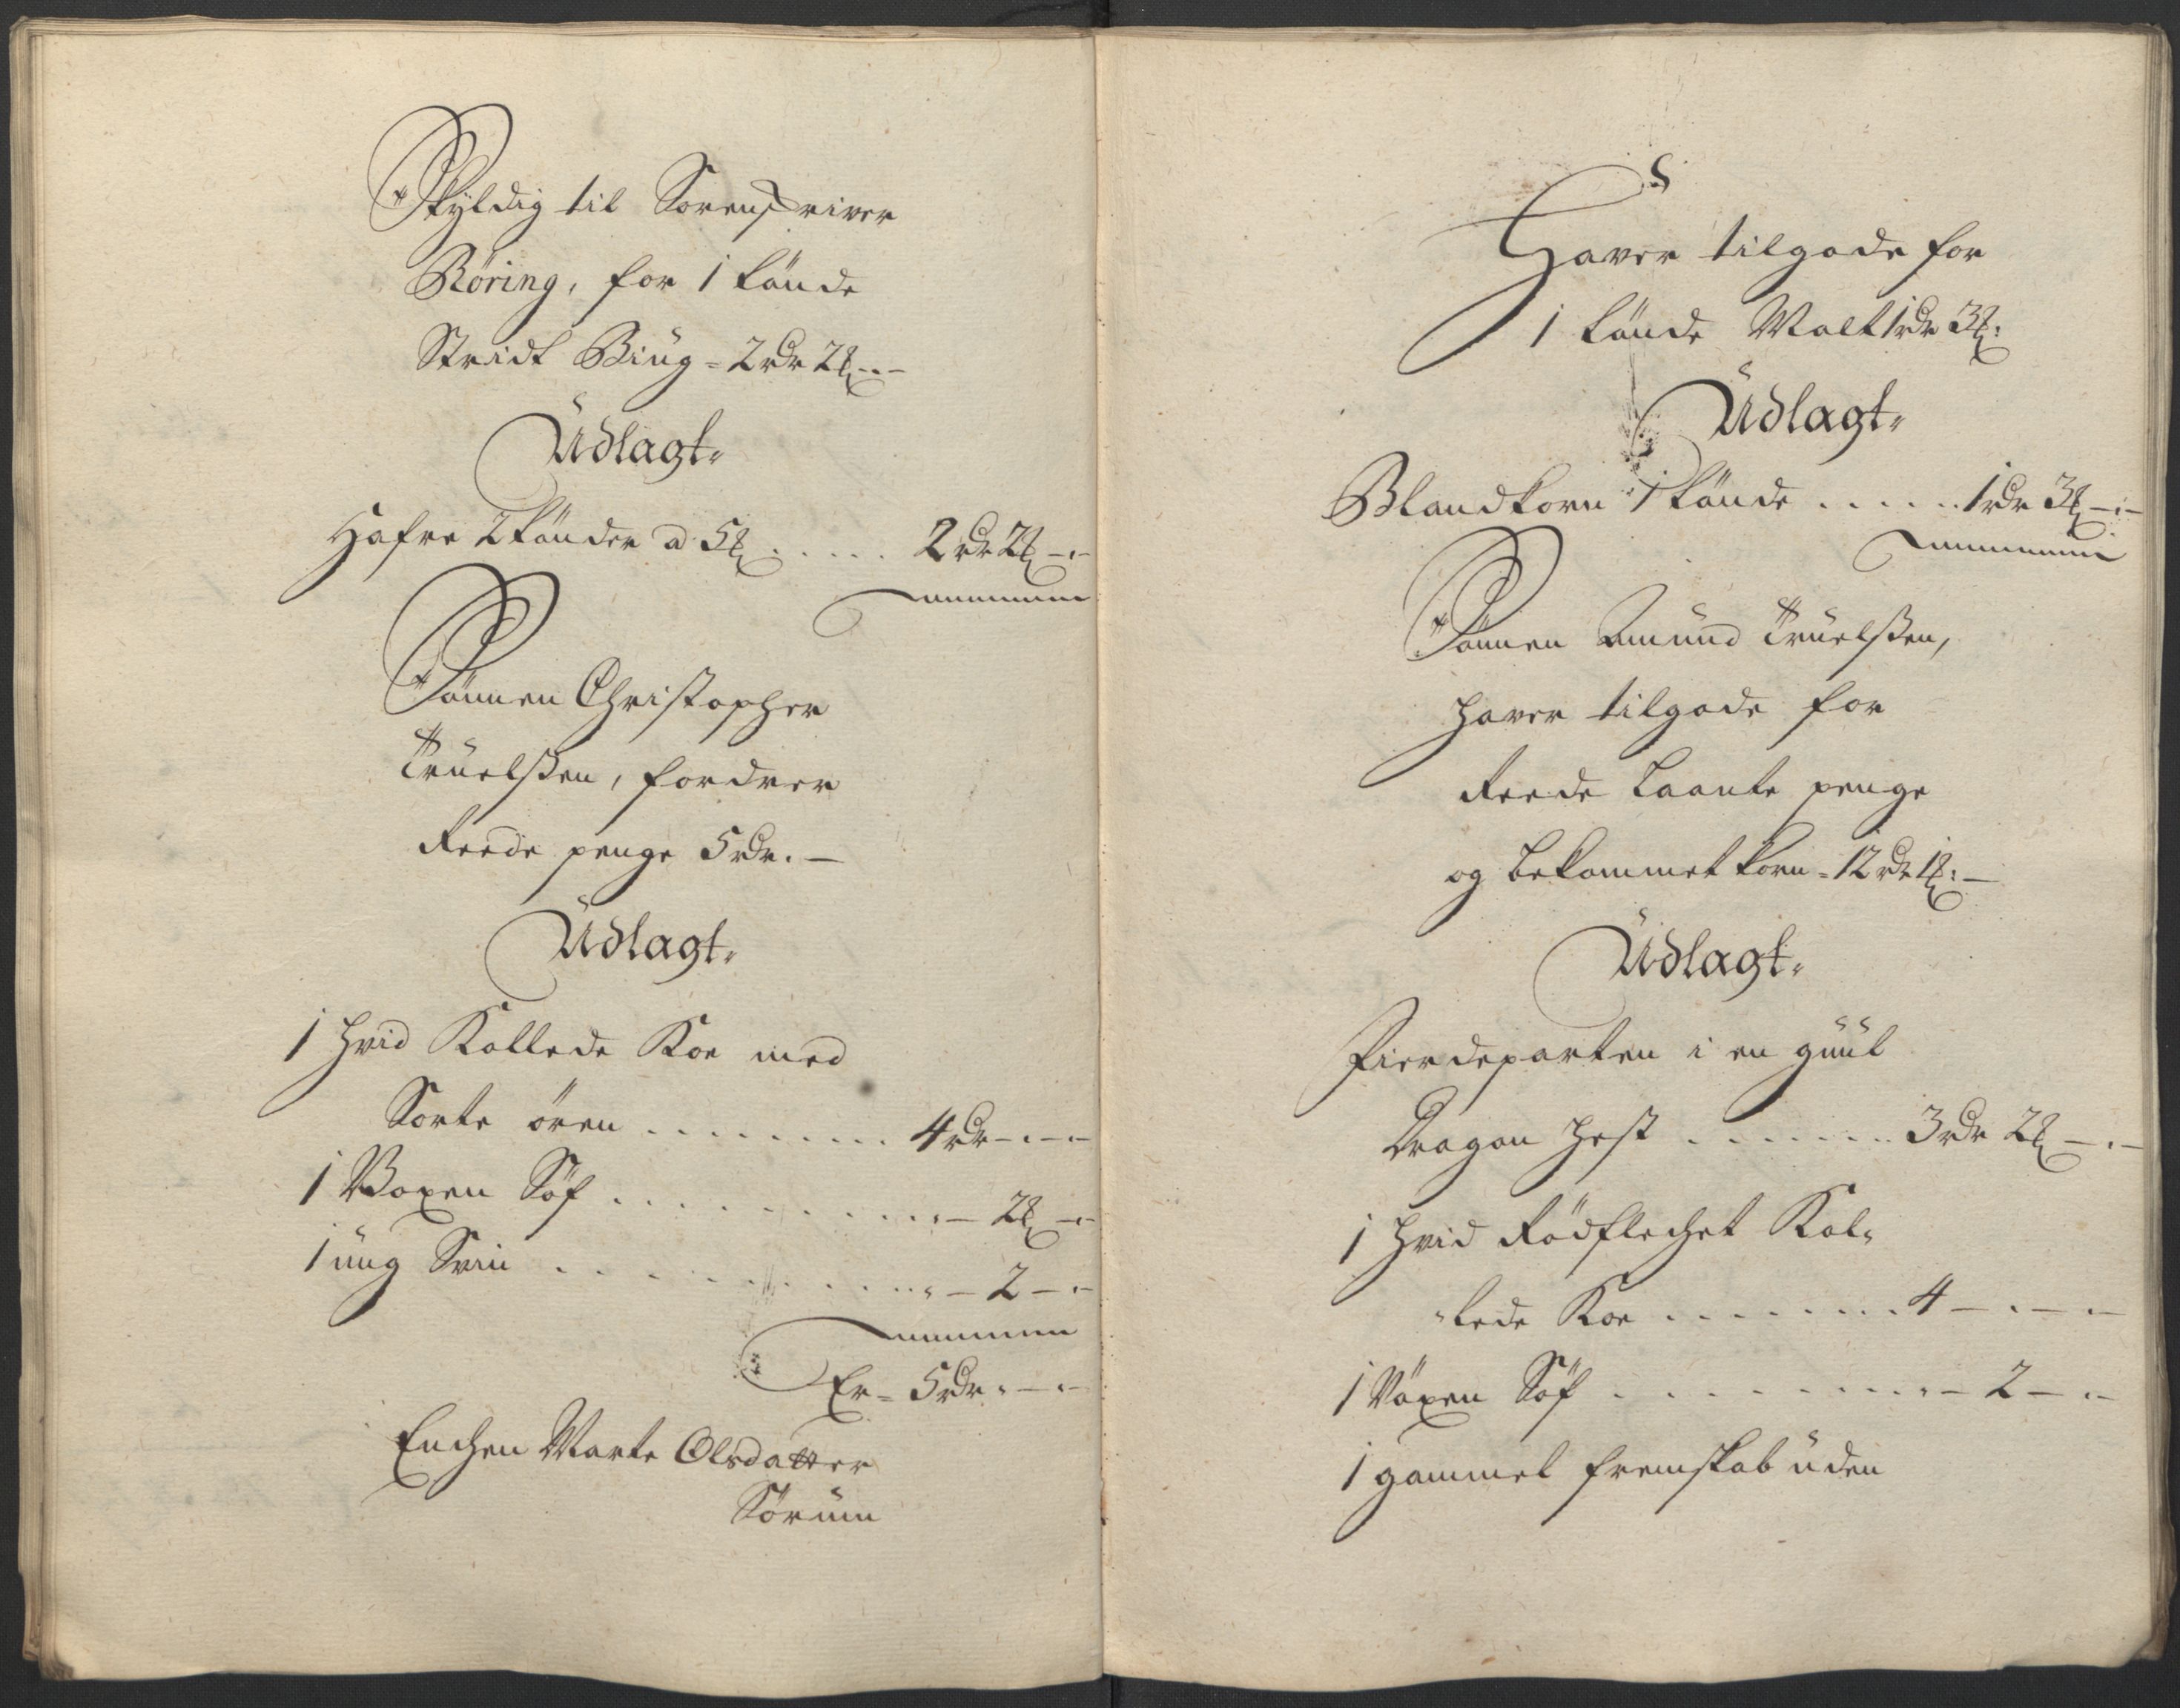 Skyldig til Sorenskriver
Röring, for 1 tønde
Stridt Biüg = 2 rdr 2 ß -.-
Üdlagt.
Hafre 2 tønder a 5 ß ..... 2 rdr 2 ß -.-
Sønnen Christopher
Trüelßen, fordrer
Reede penge 5 rdr. -
Üdlagt.
1 hvid Kollede Koe med
Sorte ören ......... 4 rdr -.-
1 Voxen Söf .......... - 2 ß -.-
1 üng Sviin .......... - 2 -.-
Er = 5 rdr. -.-
Enchen Marte Olsdatter
Sörüm
Haver tilgode for
1 tønde Malt 1 rdr 3 ß.
Üdlagt.
Blandkorn 1 tønde ...... 1 rdr 3 ß -.-
Sønnen Amünd Trüelßen,
haver tilgode for
Reede laante penge
og bekommet korn = 12 rdr 1 ß. -
Üdlagt.
Fierdeparten i en güül
Dragon hest ....... 3 rdr 2 ß -.-
1 hvid Rødflechet Kol-
lede Koe ....... 4 -.-
1 Vöxen Söf ......... - 2 -.-
1 gammel fremskab üden